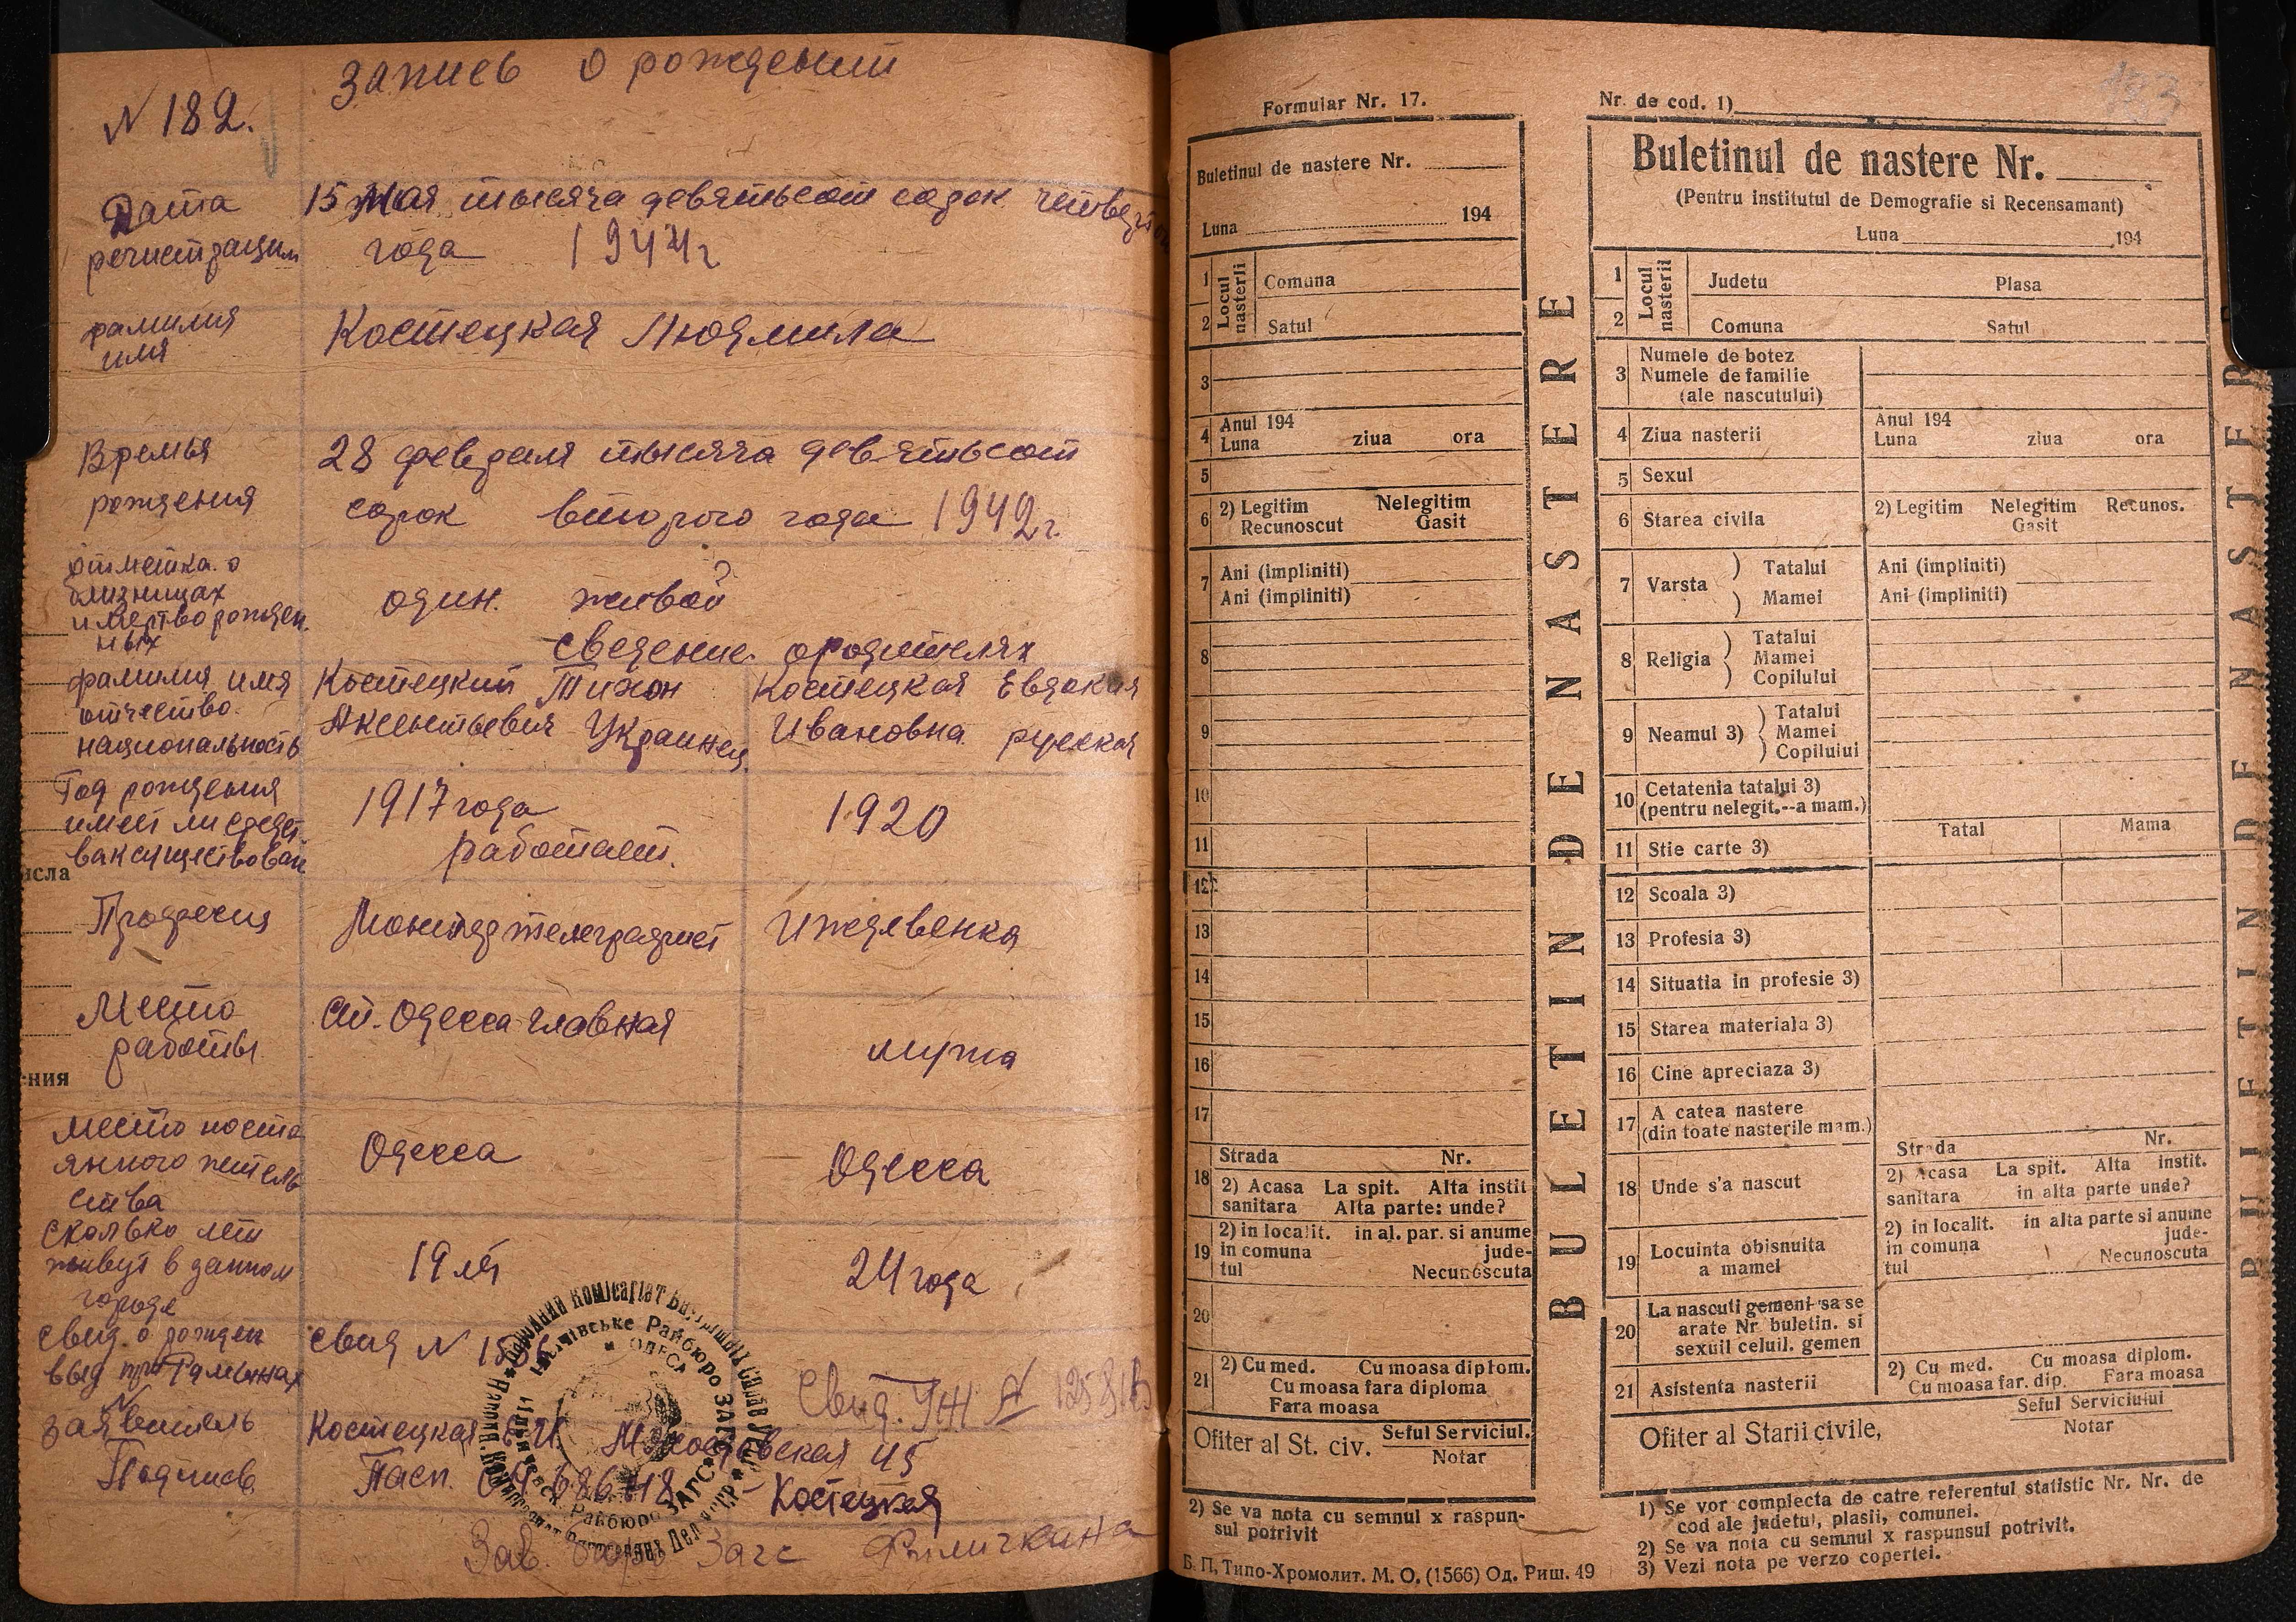 запись о рождении
N 182.
Дата регистрации
15 Мая тысяча девятьсот сорок четвертого
года 1944 г
фамилия имя
Костецкая Людмила
Времья рождения
28 февраля тысяча девятьсот
сорок второго года 1942 г.
отметка о близницах и мертворожденных
один. живой
сведение о родителях
фамилия имя отчество национальность
Костецкий Тихон Аксентьевич Украинец
Костецкая Евдокия Ивановна русская
Год рождения имеет ли средст вак существован
1917 года работает.
1920
исла
Професия
телеграфист
Иждевенка
Место работы
ст. Одесса главная
мужа
ния
место посто янного житель ства
Одесса
Одесса
сколько лет живут в данном городе
19 лет
24 года
свид. о рожден выд при Румынах N
свид N
Свид. УЖ №
заявитель
Костецкая Е И. 45
Подпись
Пасп.
Костецкая
Зав. бюро Загс
ОДЕСА
Formular Nr. 17.
Buletinul de nastere Nr.
Luna 194
1 2 Locul nasterii
Comuna
Satul
3
4 Anul 194
Luna ziua ora
5
6 2) Legitim Nelegitim
Recunoscut Gasit
7 Ani (impliniti)
Ani (impliniti)
8
9
10
11
12
13
14
15
16
17
Strada Nr.
18 2) Acasa La spit. Alta instit
sanitara Alta parte: unde?
2) in localit. in al. par. si anume
19 in comuna jude-
tul Necunoscuta
20
21 2) Cu med. Cu moasa diplom.
Cu moasa fara diploma
Fara moasa
Ofiter al St. civ. Seful Serviciul.
Notar
2) Se va nota cu semnul x raspun-
sul potrivit
Б. П, Типо-Хромолит. М. О. (1566) Од. Риш. 49
BULETIN DE NASTERE
Nr. de cod. 1)
183
Buletinul de nastere Nr.
(Pentru institutul de Demografie si Recensamant)
Luna 194
1 2 Locul nasterii
Judetu Plasa
Comuna Satul
3 Numele de botez
Numele de familie
(ale nascutului)
4 Ziua nasterii
Anul 194
Luna ziua ora
5 Sexul
6 Starea civila 2) Legitim Nelegitim Recunos.
Gasit
7 Varsta Tatalui Ani (impliniti)
Mamei Ani (impliniti)
8 Religia Tatalui
Mamei
Copilului
9 Neamul 3) Tatalui
Mamei
Copilului
10 Cetatenia tatalui 3)
(pentru nelegit.--a mam.)
Tatal Mama
11 Stie carte 3)
12 Scoala 3)
13 Profesia 3)
14 Situatia in profesie 3)
15 Starea materiala 3)
16 Cine apreciaza 3)
17 A catea nastere
(din toate nasterile mam.)
Strada Nr.
18 Unde s'a nascut 2) Acasa La spit. Alta instit.
sanitara in alta parte unde?
19 Locuinta obisnuita
a mamei
2) in localit. in alta parte si anume
in comuna jude-
tul Necunoscuta
20 La nascuti gemeni sa se
arate Nr. buletin. si
sexuil celuil. gemen
21 Asistenta nasterii 2) Cu med. Cu moasa diplom.
Cu moasa far. dip. Fara moasa
Ofiter al Starii civile, Seful Serviciului
Notar
1) Se vor complecta de catre referentul statistic Nr. Nr. de
cod ale judetul, plasii, comunei.
2) Se va nota cu semnul x raspunsul potrivit.
3) Vezi nota pe verzo copertei.
BULETIN DE NASTER